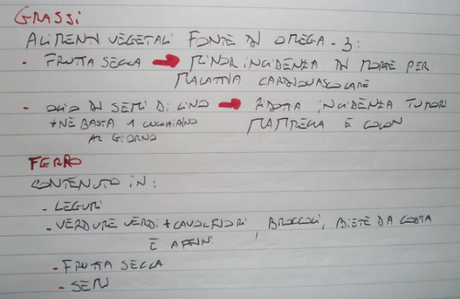 GRASSI
ALIMENTI VEGETALI FONTE DI OMEGA-3:
- FRUTTA SECCA → MINOR INCIDENZA DI MORTE PER
MALATTIA CARDIOVASCOLARE
- OLIO DI SEMI DI LINO → RIDOTTA INCIDENZA TUMORI
*NE BASTA 1 CUCCHIAINO MAMMELLA E COLON
AL GIORNO
FERRO
CONTENUTO IN:
- LEGUMI
- VERDURE VERDI + CAVOLFIORI, BROCCOLI, BIETE DA COSTA
E AFFINI
- FRUTTA SECCA
- SEMI